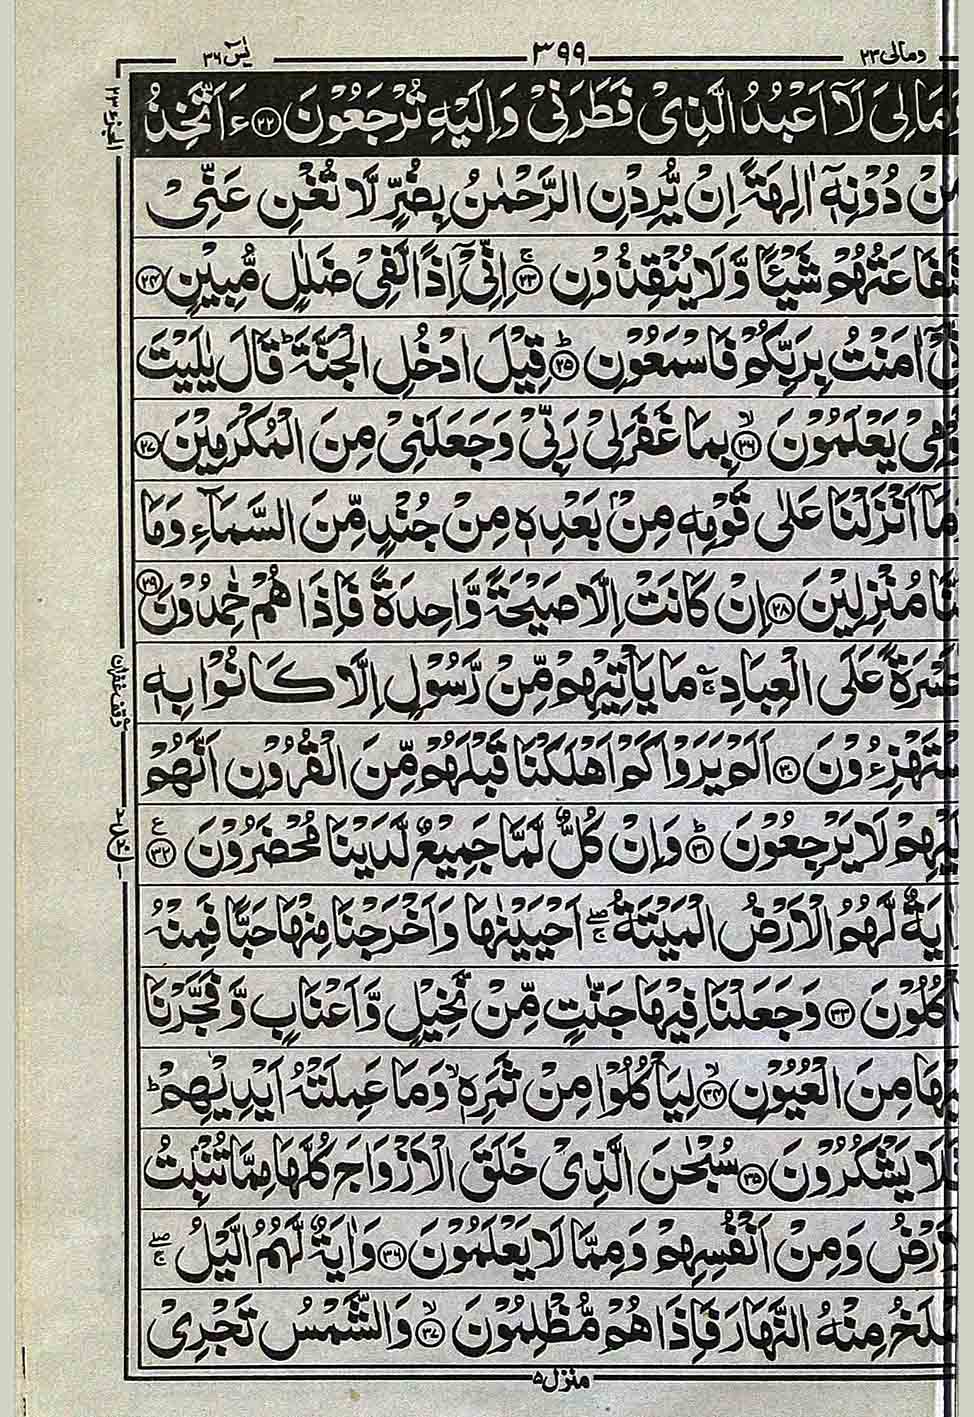 ومالی ۲۳ ۳۹۹ یٰسٓ ۳۶
وَمَالِیَ لَاۤ اَعْبُدُ الَّذِیْ فَطَرَنِیْ وَاِلَیْهِ تُرْجَعُوْنَ ۲۲ ءَاَتَّخِذُ
مِنْ دُوْنِهٖۤ اٰلِهَةً اِنْ یُّرِدْنِ الرَّحْمٰنُ بِضُرٍّ لَّا تُغْنِ عَنِّیْ
شَفَاعَتُهُمْ شَیْـًٔا وَّلَا یُنْقِذُوْنِ ۲۳ اِنِّیْۤ اِذًا لَّفِیْ ضَلٰلٍ مُّبِیْنٍ ۲۴
اِنِّیْۤ اٰمَنْتُ بِرَبِّكُمْ فَاسْمَعُوْنِ ۲۵ قِیْلَ ادْخُلِ الْجَنَّةَ ؕ قَالَ یٰلَیْتَ
قَوْمِیْ یَعْلَمُوْنَ ۲۶ بِمَا غَفَرَلِیْ رَبِّیْ وَجَعَلَنِیْ مِنَ الْمُكْرَمِیْنَ ۲۷
وَمَاۤ اَنْزَلْنَا عَلٰی قَوْمِهٖ مِنْۢ بَعْدِهٖ مِنْ جُنْدٍ مِّنَ السَّمَآءِ وَمَا
كُنَّا مُنْزِلِیْنَ ۲۸ اِنْ كَانَتْ اِلَّا صَیْحَةً وَّاحِدَةً فَاِذَا هُمْ خٰمِدُوْنَ ۲۹
یٰحَسْرَةً عَلَی الْعِبَادِ ۚ مَا یَاْتِیْهِمْ مِّنْ رَّسُوْلٍ اِلَّا كَانُوْا بِهٖ
یَسْتَهْزِءُوْنَ ۳۰ اَلَمْ یَرَوْا كَمْ اَهْلَكْنَا قَبْلَهُمْ مِّنَ الْقُرُوْنِ اَنَّهُمْ
اِلَیْهِمْ لَا یَرْجِعُوْنَ ۳۱ وَاِنْ كُلٌّ لَّمَّا جَمِیْعٌ لَّدَیْنَا مُحْضَرُوْنَ ۳۲ ع
وَاٰیَةٌ لَّهُمُ الْاَرْضُ الْمَیْتَةُ ۖۚ اَحْیَیْنٰهَا وَاَخْرَجْنَا مِنْهَا حَبًّا فَمِنْهُ
یَاْكُلُوْنَ ۳۳ وَجَعَلْنَا فِیْهَا جَنّٰتٍ مِّنْ نَّخِیْلٍ وَّاَعْنَابٍ وَّفَجَّرْنَا
فِیْهَا مِنَ الْعُیُوْنِ ۳۴ لِیَاْكُلُوْا مِنْ ثَمَرِهٖ ۙ وَمَا عَمِلَتْهُ اَیْدِیْهِمْ ؕ
اَفَلَا یَشْكُرُوْنَ ۳۵ سُبْحٰنَ الَّذِیْ خَلَقَ الْاَزْوَاجَ كُلَّهَا مِمَّا تُنْۢبِتُ
الْاَرْضُ وَمِنْ اَنْفُسِهِمْ وَمِمَّا لَا یَعْلَمُوْنَ ۳۶ وَاٰیَةٌ لَّهُمُ الَّیْلُ ۖۚ
نَسْلَخُ مِنْهُ النَّهَارَ فَاِذَا هُمْ مُّظْلِمُوْنَ ۳۷ وَالشَّمْسُ تَجْرِیْ
منزل ۵
وقف غفران